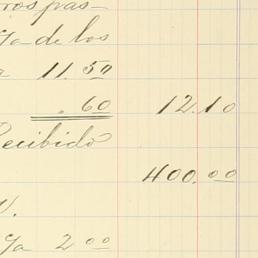 ros pas-
ga de los
a 11.50
.60 12.10
Recibido
400.00
V.
ga 2 00